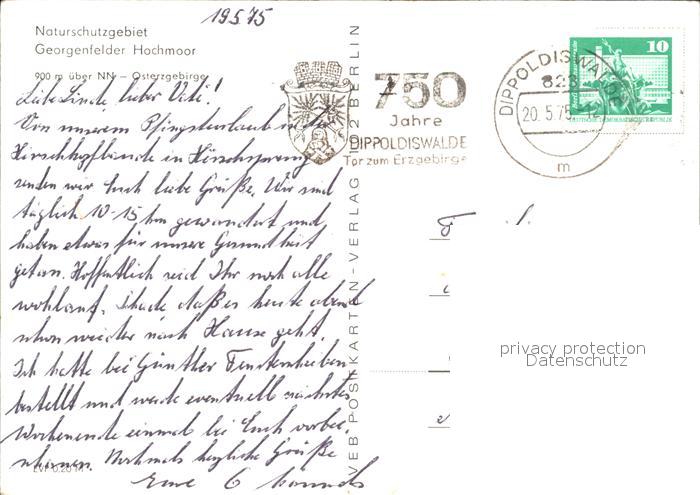 19.5.75
Naturschutzgebiet
Georgenfelder Hochmoor
900 m über NN – Osterzgebirge
Liebe Linde, lieber Veli!
Von unserem Pfingsturlaub in der
Hirschkopfbaude in Hirschsprung
senden wir Euch liebe Grüße. Wir sind
täglich 10-15 km gewandert und
haben etwas für unsere Gesundheit
getan. Hoffentlich seid Ihr noch alle
wohlauf. Schade daß es heute abend
schon wieder nach Hause geht.
Ich hatte bei Günther Fensterscheiben
bestellt und werde eventuell nächstes
Wochenende einmal bei Euch vorbei
schauen. Nochmals herzliche Grüße
Eure 6
EVP 0,20 M
VEB POSTKARTEN-VERLAG 102 BERLIN
750
Jahre
DIPPOLDISWALDE
Tor zum Erzgebirge
DIPPOLDISWALDE
823
20.5.75
m
10
DEUTSCHE DEMOKRATISCHE REPUBLIK
privacy protection
Datenschutz